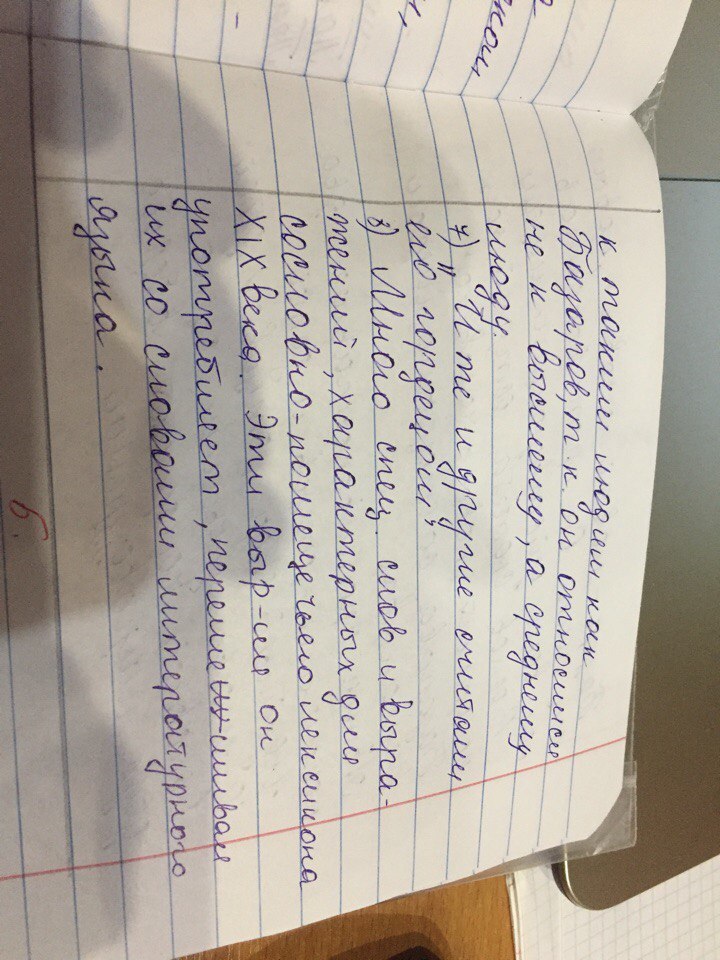 к таким людям как
Базаров, т.к. он относился
не к высшему, а среднему
люду.
7) "И те и другие считали
его гордецом"
8) Много спец. слов и выра-
жений, характерных для
сословно-помещечьего лексикона
XIX века. Эти выр-ия он
употребляет, перемешивая
их со словами литературного
языка.
Б.